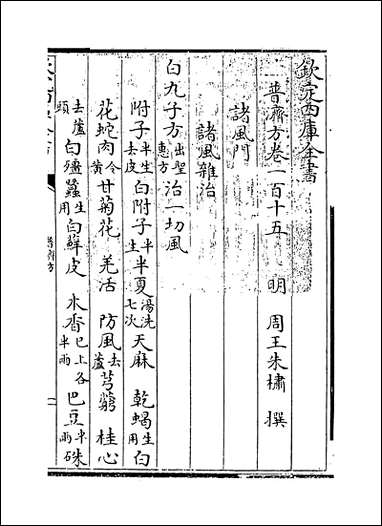 欽定四庫全書
普濟方卷一百十五 明 周王朱橚 撰
諸風門
諸風雜治
白丸子方出聖惠方治一切風
附子半生去皮白附子半生半夏湯洗七次天麻 乾蝎生用白
花蛇肉令黄甘菊花 羌活 防風去蘆芎藭 桂心
去蘆頭白殭蠶生用白鮮皮 木香已上各半兩巴豆半兩硃
普濟方